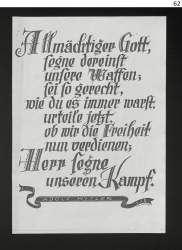 62
Allmächtiger Gott,
segne dereinst
unsere Waffen;
sei so gerecht,
wie du es immer warst.
urteile jetzt,
ob wir die Freiheit
nun verdienen;
Herr segne
unseren Kampf.
ADOLF HITLER